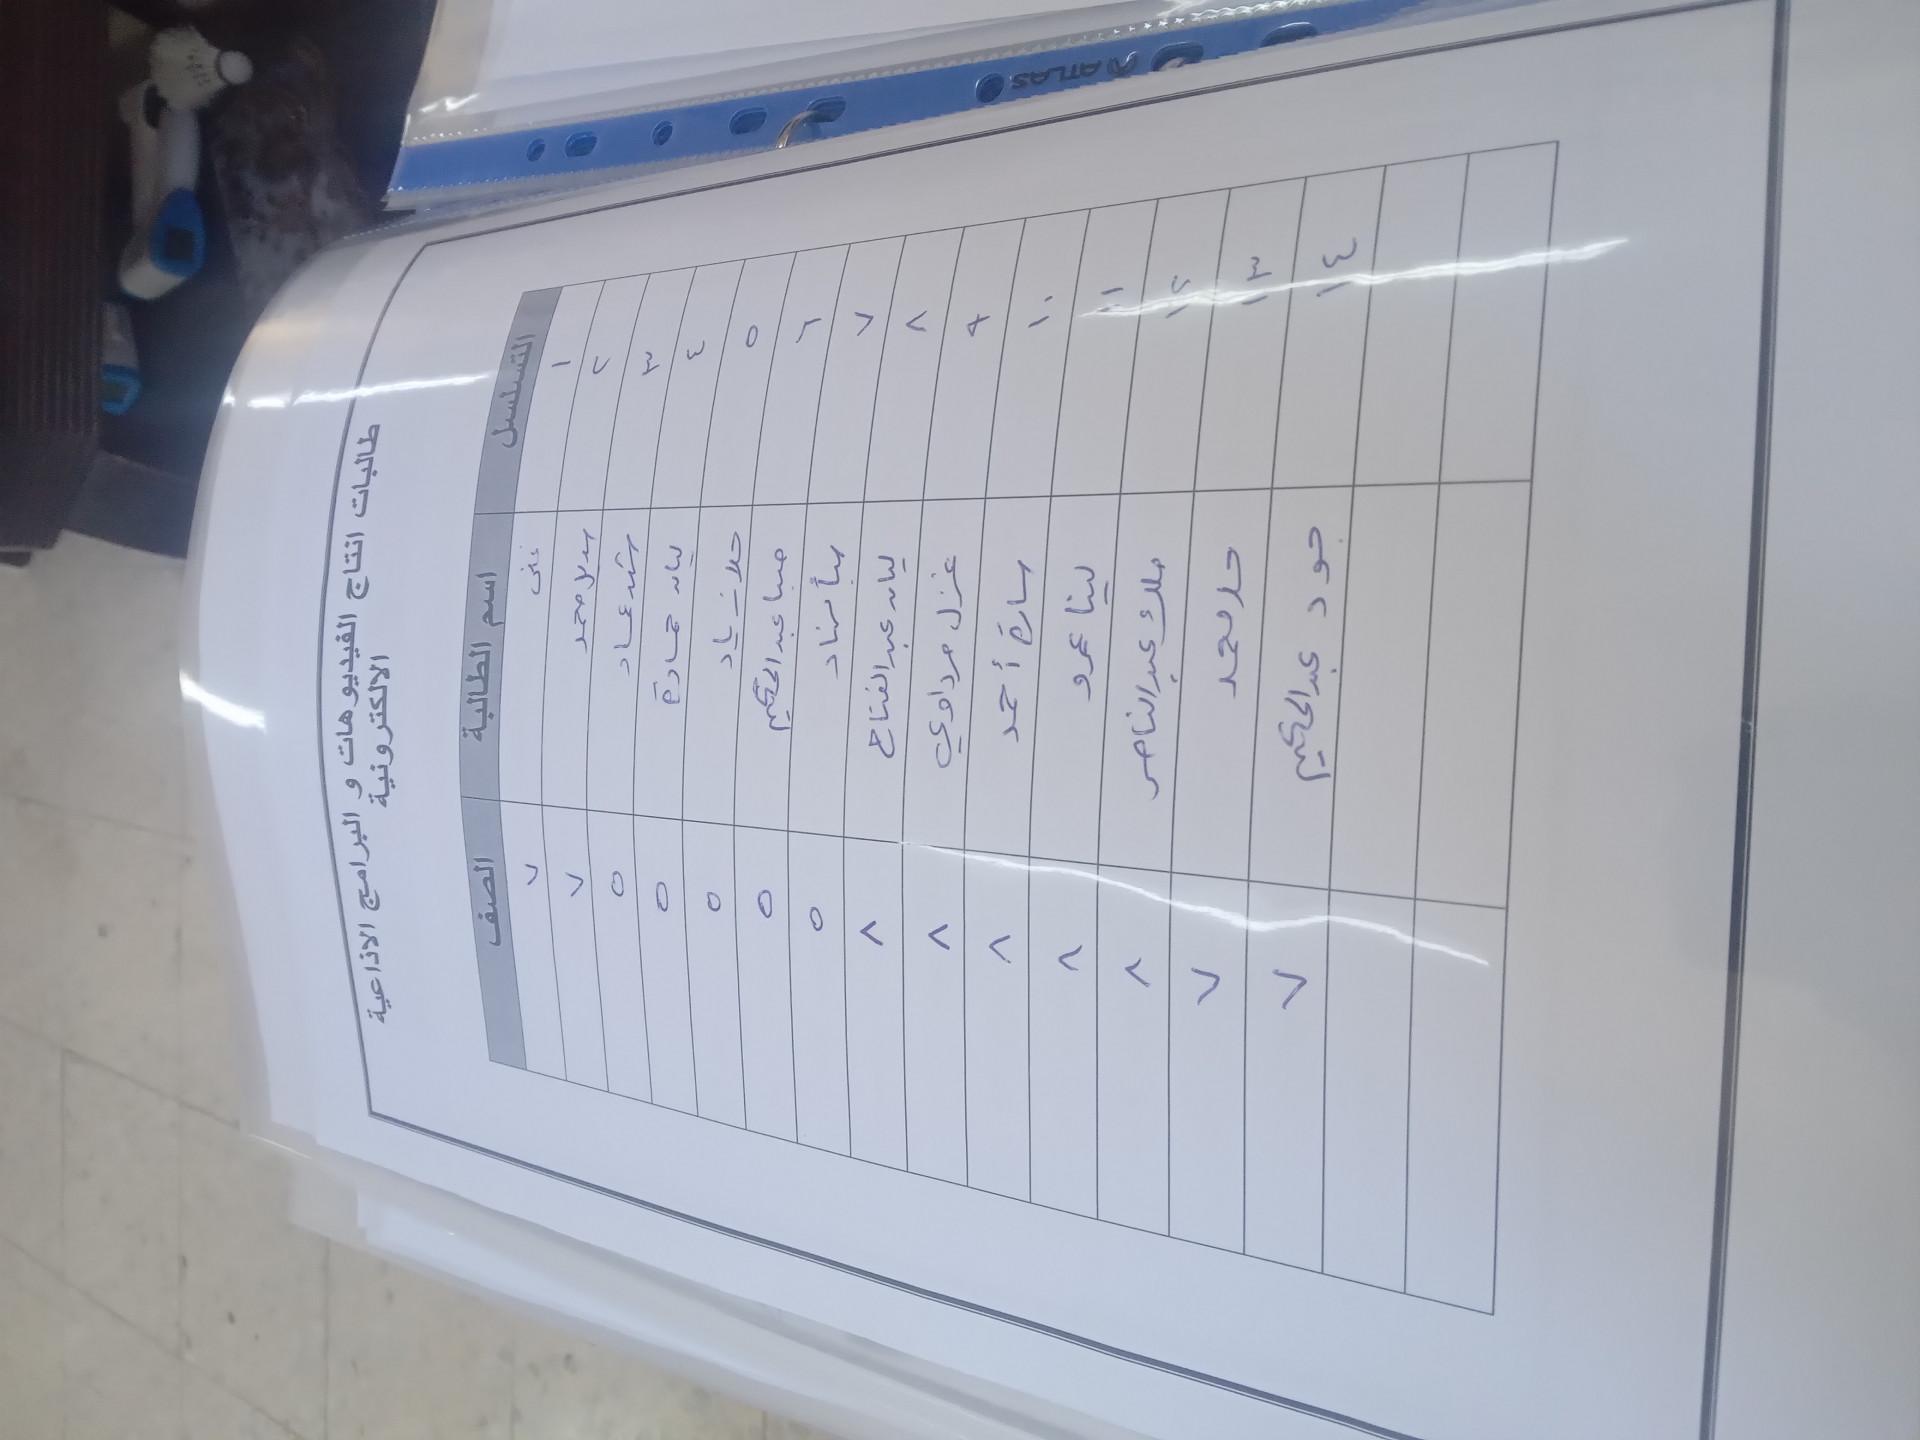 ATLAS
طالبات انتاج الفيديوهات و البرامج الاذاعية
الالكترونية
التسلسل اسم الطالبة الصف
١ غنى ٧
٢ محمد ٧
٣ شهد عماد ٥
٤ ليان حمادة ٥
٥ حلا زياد ٥
٦ صبا عبد الحكيم ٥
٧ سبأ سناد ٥
٨ ليان عبد الفتاح ٨
٩ غزل مرداوي ٨
١٠ سارة أحمد ٨
١١ لينا عمرو ٨
١٢ ملاك عبد الناصر ٨
١٣ حلا محمد ٧
١٤ جود عبد الحكيم ٧